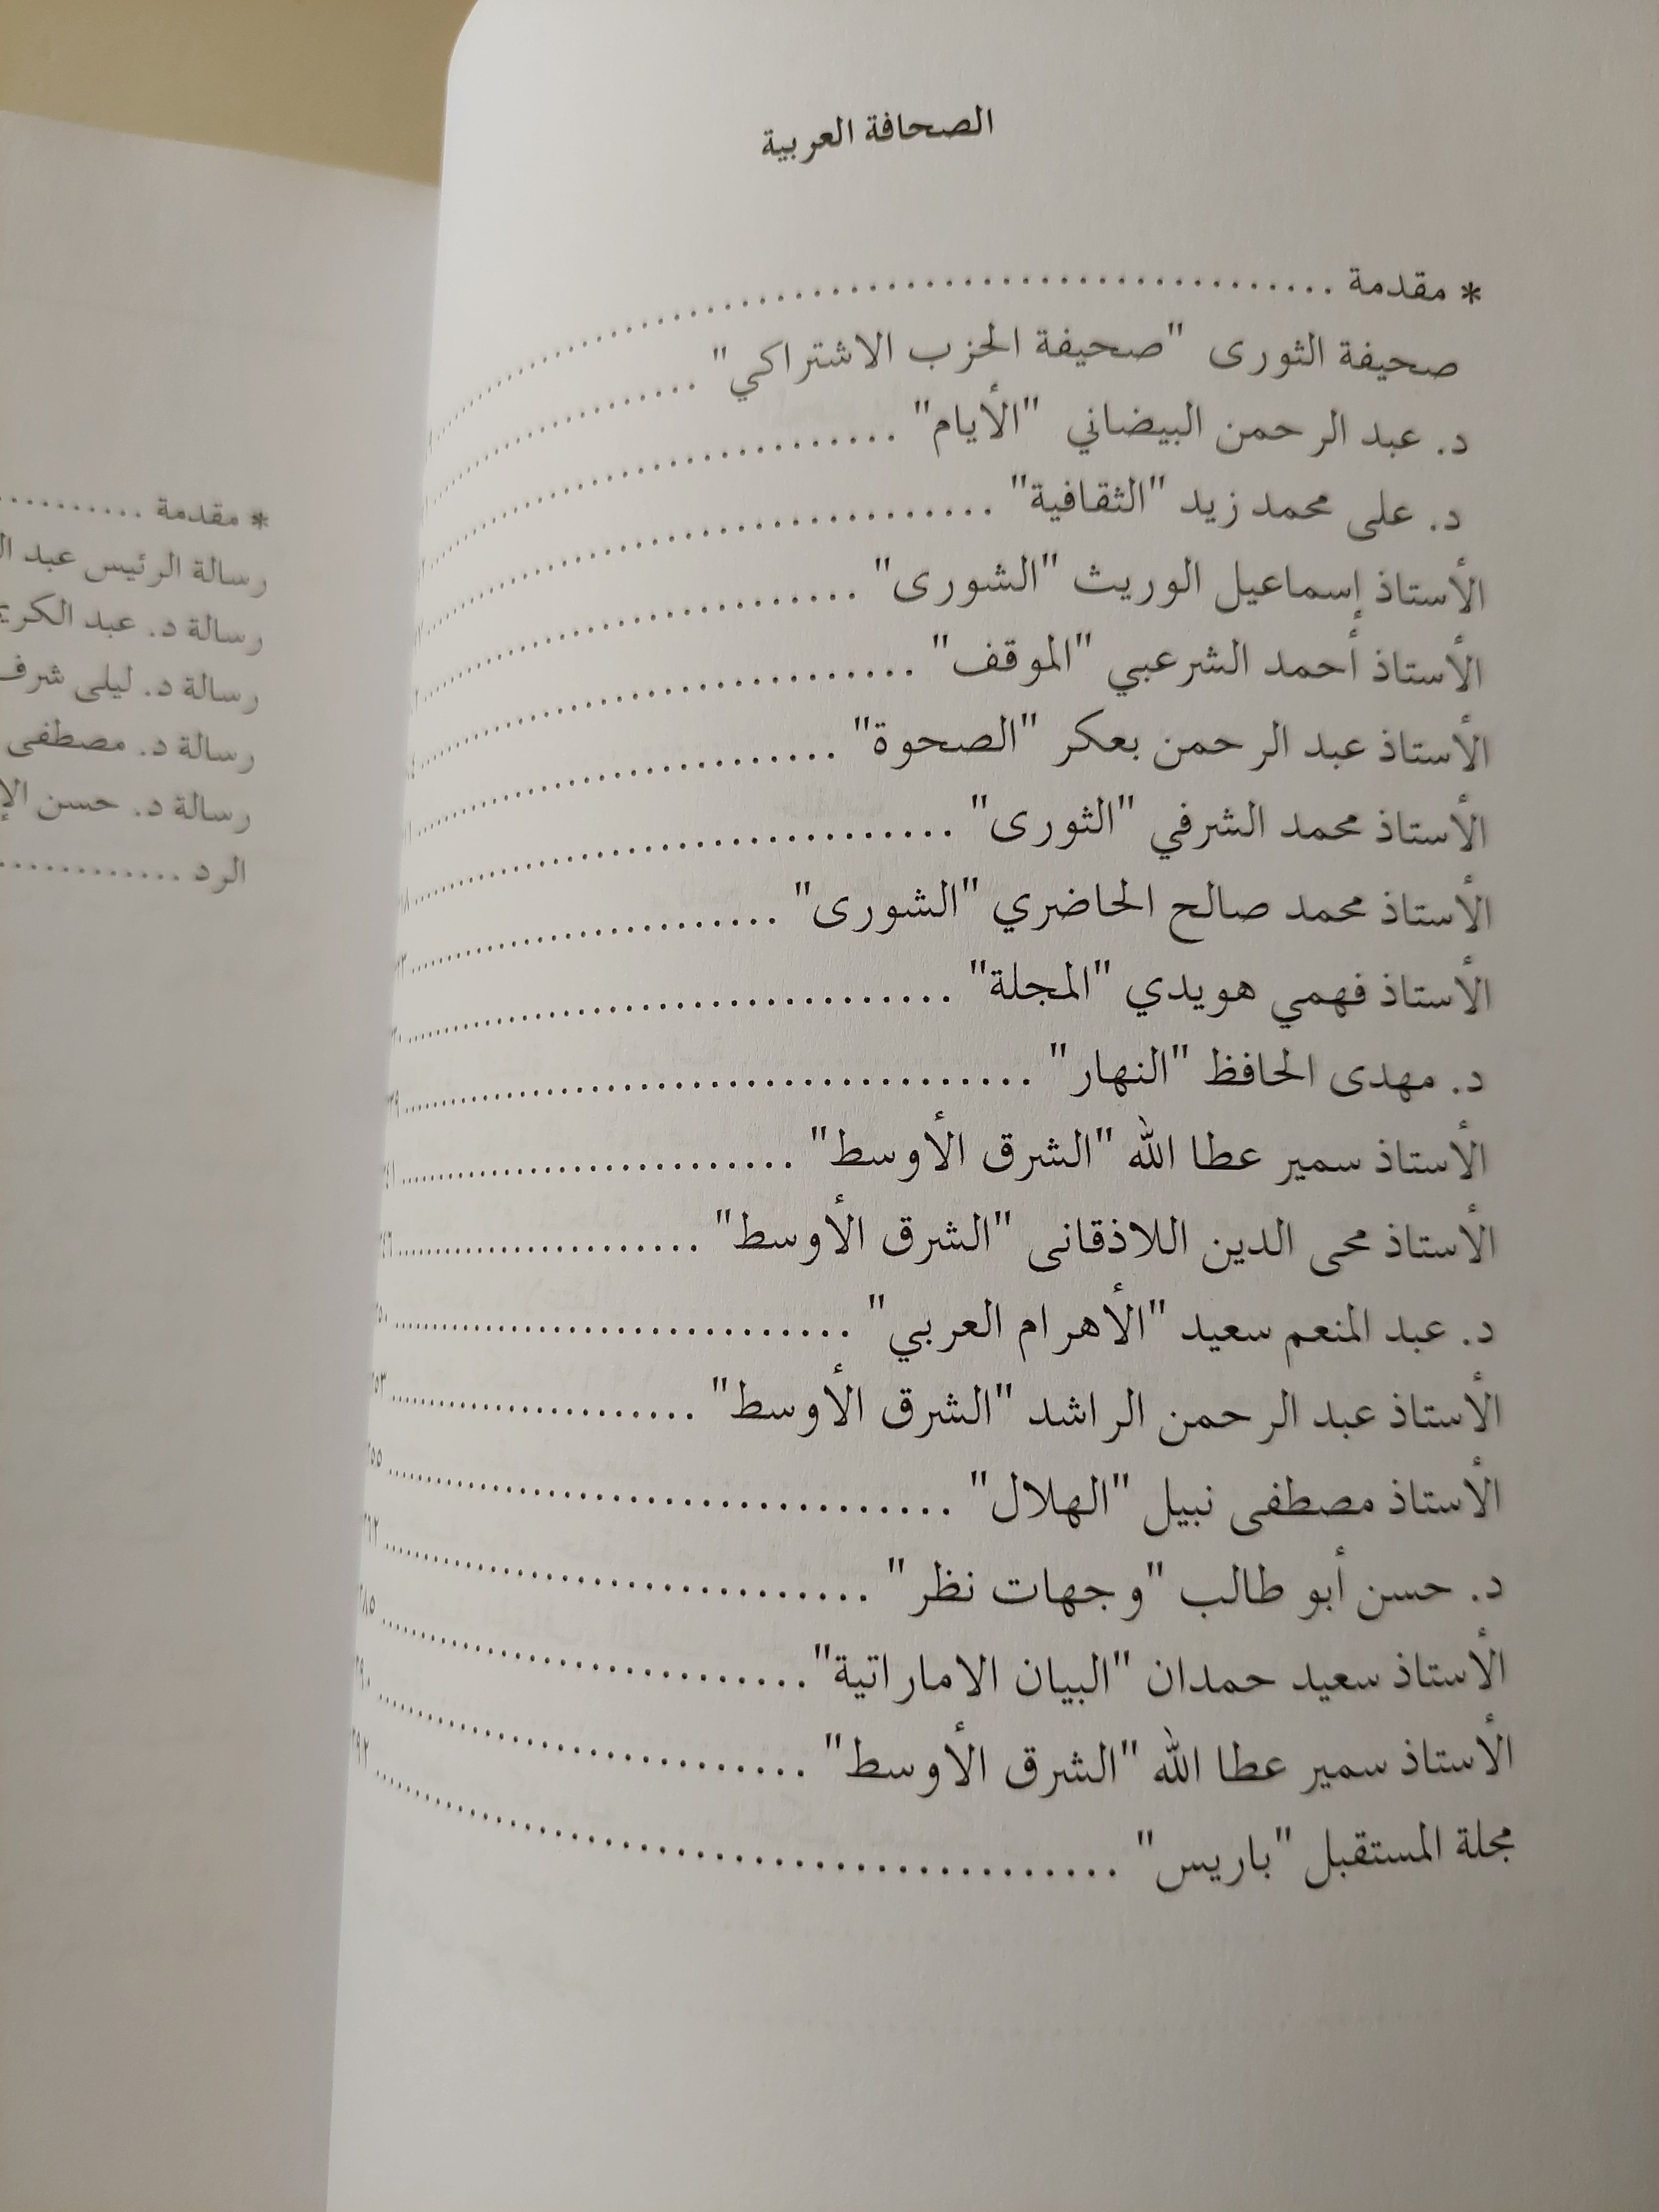 الصحافة العربية
* مقدمة ........................................
صحيفة الثورى "صحيفة الحزب الاشتراكي" ........................................
د. عبد الرحمن البيضاني "الأيام" ........................................
د. على محمد زيد "الثقافية" ........................................
الأستاذ إسماعيل الوريث "الشورى" ........................................
الأستاذ أحمد الشرعبي "الموقف" ........................................
الأستاذ عبد الرحمن بعكر "الصحوة" ........................................
الأستاذ محمد الشرفي "الثورى" ........................................
الأستاذ محمد صالح الحاضري "الشورى" ........................................
الأستاذ فهمي هويدي "المجلة" ........................................
د. مهدى الحافظ "النهار" ........................................
الأستاذ سمير عطا الله "الشرق الأوسط" ........................................
الأستاذ محى الدين اللاذقانى "الشرق الأوسط" ........................................
د. عبد المنعم سعيد "الأهرام العربي" ........................................
الأستاذ عبد الرحمن الراشد "الشرق الأوسط" ........................................
الأستاذ مصطفى نبيل "الهلال" ........................................
د. حسن أبو طالب "وجهات نظر" ........................................
الأستاذ سعيد حمدان "البيان الاماراتية" ........................................
الأستاذ سمير عطا الله "الشرق الأوسط" ........................................
مجلة المستقبل "باريس" ........................................
* مقدمة ...........
رسالة الرئيس عبد
رسالة د. عبد
رسالة د. ليلى شرف
رسالة د. مصطفى
رسالة د. حسن
الرد ............